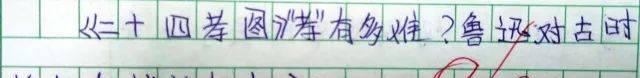 《二十四孝图》“孝”有多难？鲁迅对古时